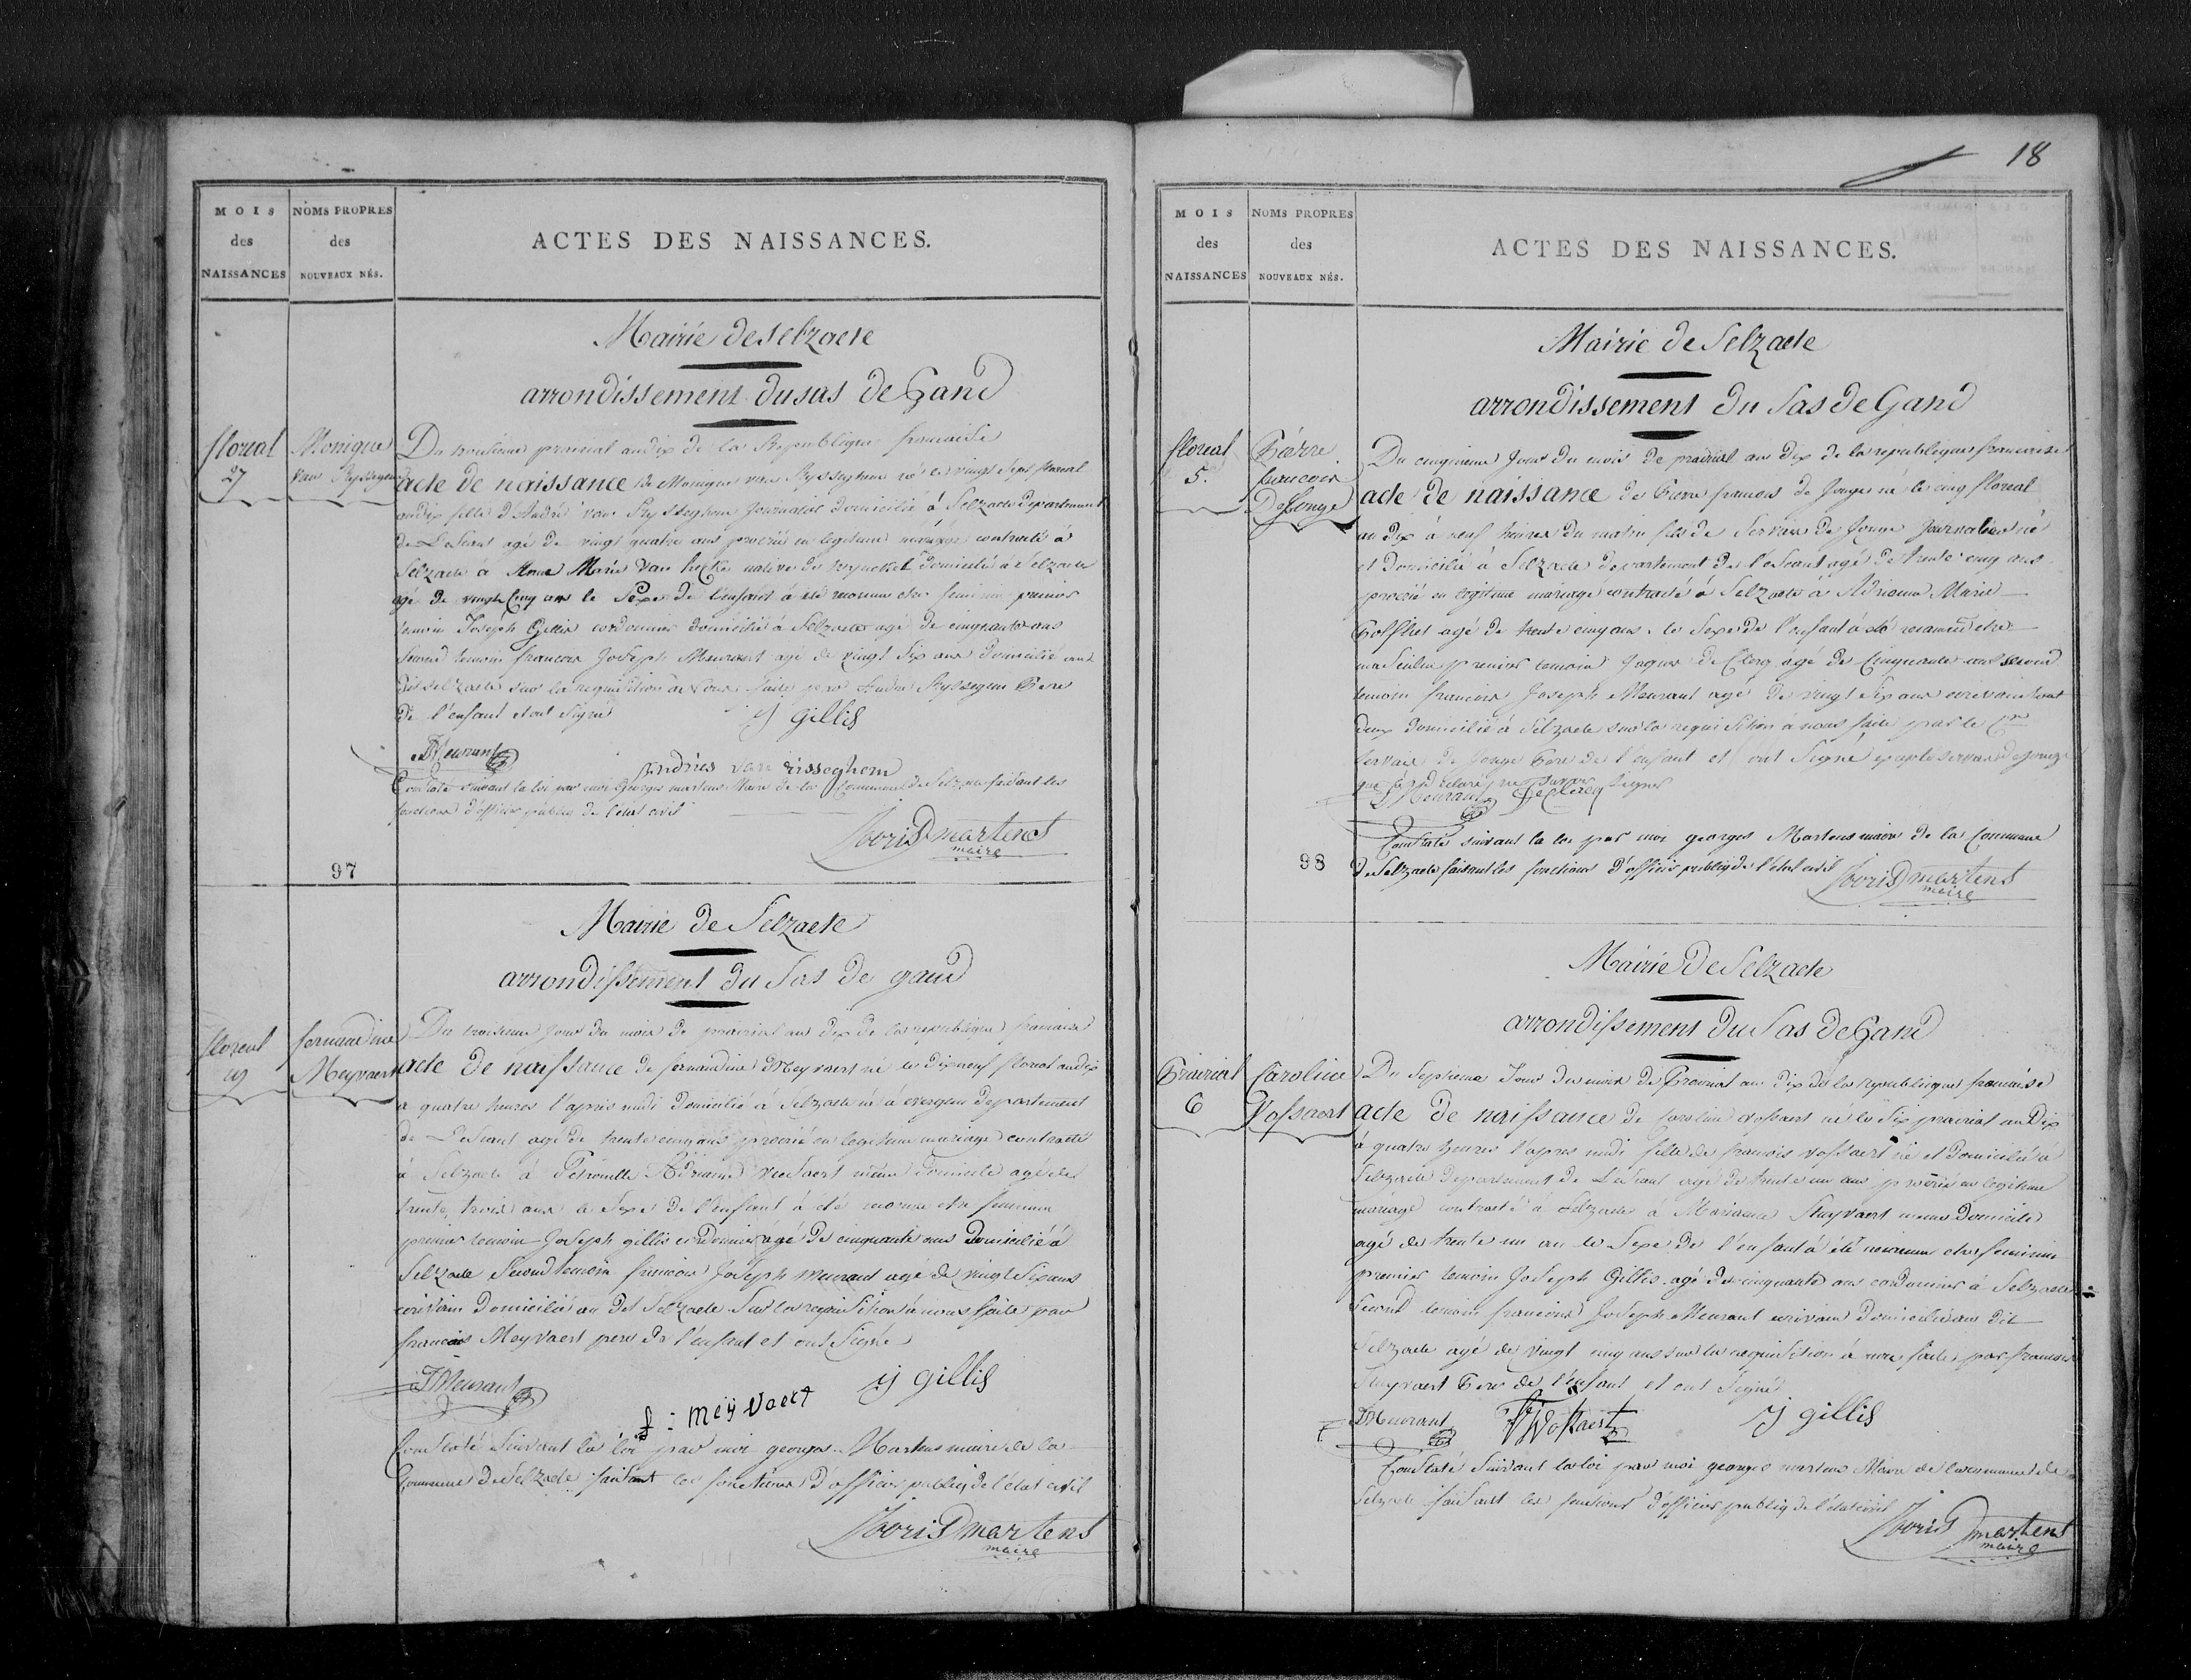 MOIS
des
NAISSANCES
NOMS PROPRES
des
NOUVEAUX NÉS.
ACTES DES NAISSANCES.
Mairie de Selzaete
arrondissement du sas de Gand
floreal
27
Monique
Van Ryssegem
Du troisieme prairial an dix de la Republique francaise
acte de naissance de Monique van Rysseghem né le vingt Sept floreal
an dix fille d'Andre van Rysseghem Journalier domicilié à Selzaete departement
de L'escaut agé de vingt quatre ans procrée en legitime mariage contracté à
Selzaete à Marie van hecke native de domicilié à Selzaete
agé de vingt Cinq ans le Sexe de l'enfant à été reconnu etre feminin premier
temoin Joseph Gillis cordonnier domicilié à Selzaete agé de cinquante ans
Second temoin francois Joseph Meurant agé de vingt Six ans domicilié au
dit Selzaete Sur la requisition à nous faite par Andre Ryssegem Pere
de l'enfant et ont Signé
ij gillis
FJMeurant
Andries van risseghem
Constaté Suivant la loi par moi Georges martens Maire de la Commune de Selzaete faisant les
fonctions d'officier publiq de l'etat civil
Jooris martens
maire
97
Mairie de Selzaete
arrondissement du Sas de gand
floreal
19
fernandine
Meyvaert
Du troisieme Jour du mois de prairial an dix de la republique francaise
acte de naissance de fernandine Meyvaert né le dixneuf floreal an dix
a quatre heures l'apres midi domicilié à Selzaete né à evergem departement
de L'escaut agé de trente cinq ans procrée en legitime mariage contracté
à Selzaete à Petronille Adrienne même domicile agé de
trente trois ans le Sexe de l'enfant à été reconnu etre feminin
premier temoin Joseph gillis cordonnier agé de cinquante ans domicilié à
Selzaete Second temoin francois Joseph Meurant agé de vingt Six ans
ecrivain domicilié au dit Selzaete Sur la requisition à nous faite par
francois Meyvaert pere de l'enfant et ont Signé
FJMeurant
ij gillis
f: meij vaert
Constaté Suivant la loi par moi georges Martens maire de la
Commune de Selzaete faisant les fonctions d'officier publiq de l'état civil
Jooris martens
maire
18
MOIS
des
NAISSANCES
NOMS PROPRES
des
NOUVEAUX NÉS.
ACTES DES NAISSANCES.
Mairie de Selzaete
arrondissement du Sas de Gand
floreal
5.
Piérre
francois
DeJonge
Du cinquieme Jour du mois de prairial an dix de la republique francaise
acte de naissance de Pierre francois de Jonge né le cinq floreal
an dix à neuf heures du matin fils de Servais de Jonge Journalier né
et domicilié à Selzaete departement de l'escaut agé de trente cinq ans
procrée en legitime mariage contracté à Selzaete à Adrienne Marie
agé de trente cinq ans le Sexe de l'enfant à été reconnu etre
masculin premier temoin Jaques de Clerq agé de Cinquante ans second
temoin francois Joseph Meurant agé de vingt Six ans ecrivain tout
deux domicilié à Selzaete sur la requisition à nous faite par le Cen
Servais de Jonge Pere de l'enfant et ont Signé excepté servais de Jonge
qui a declaré ne savoir Signer
FJMeurant DeClercq
Constaté suivant la loi par moi georges Martens maire de la Commune
de Selzaete faisant les fonctions d'officier publiq de l'etat civil
Jooris martens
maire
98
Mairie de Selzaete
arrondissement du Sas de Gand
Prairial
6
Caroline
Vossaert
Du Septieme Jour du mois de Prairial an dix de la republique francaise
acte de naissance de Caroline vossaert né le Six prairial an Dix
à quatre heures l'apres midi fille de francois vossaert né et domicilié à
Selzaete departement de L'escaut agé de trente un ans procrée en legitime
mariage contracté à Selzaete à Marianne Stuyvaert meme domicile
agé de trente un an le Sexe de l'enfant à été reconnu etre feminin
premier temoin Joseph Gillis agé de cinquante ans cordonnier à Selzaete
Second temoin francois Joseph Meurant ecrivain domicilié au dit
Selzaete agé de vingt cinq ans sur la requisition à nous faite par francois
Stuyvaert Pere de l'enfant et ont Signé
FJMeurant
FVossaert
ij gillis
Constaté Suivant la loi par moi georges martens Maire de la commune de
Selzaete faisant les fonctions d'officier publiq de l'etat civil
Jooris martens
maire